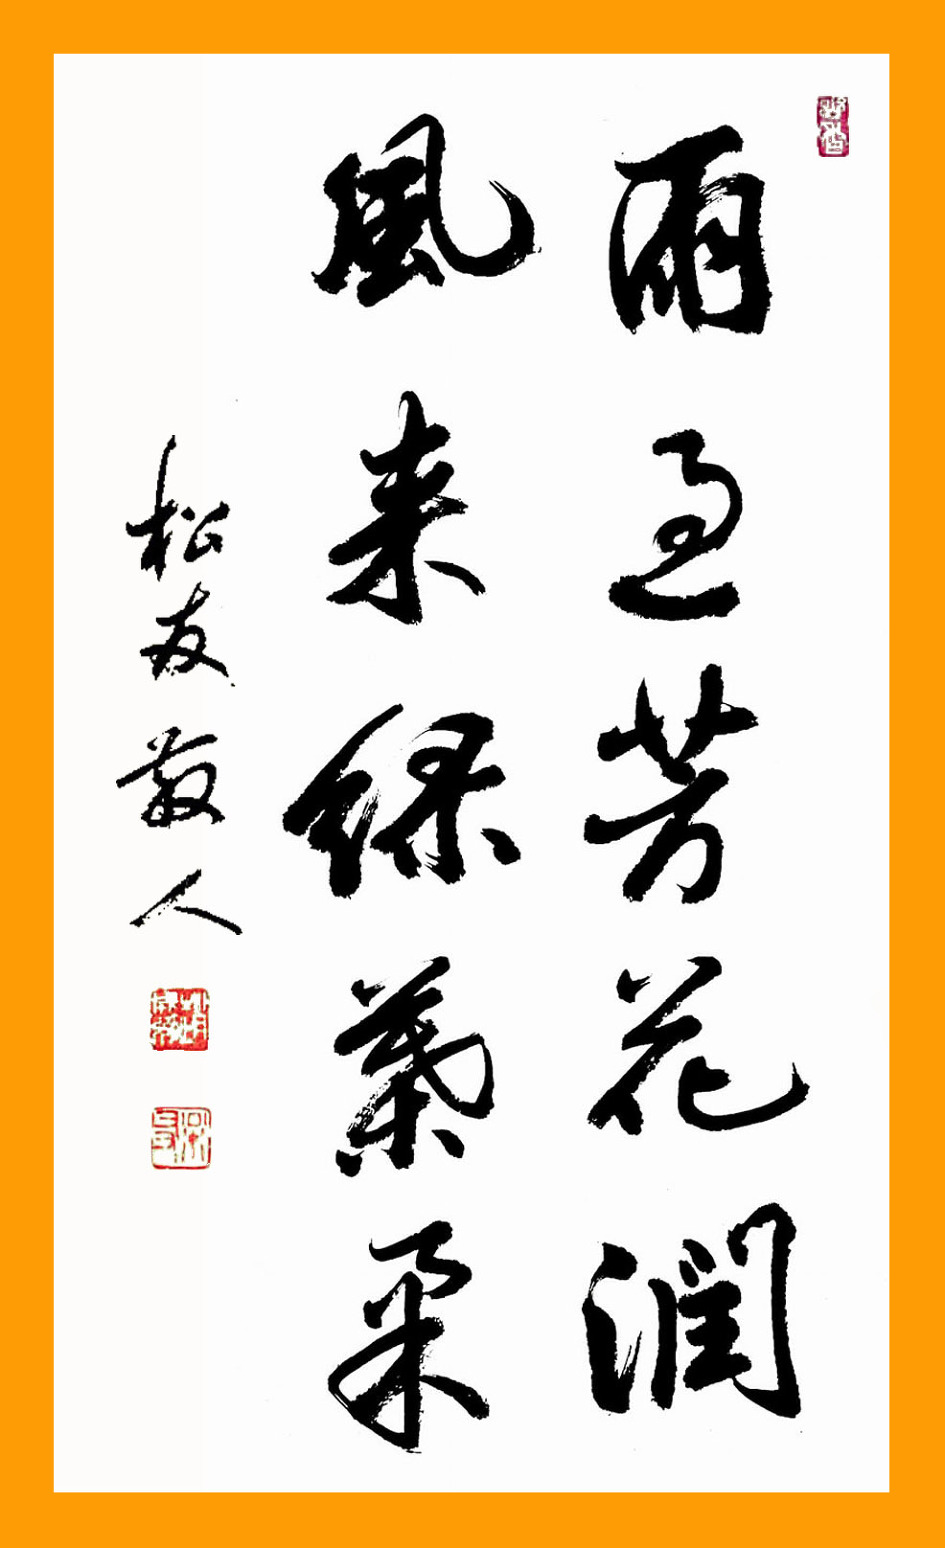 雨過芳花潤
風来緑葉柔
松友散人